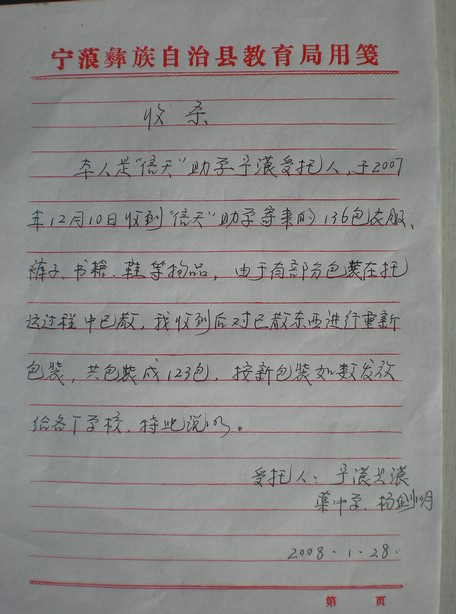 宁蒗彝族自治县教育局用笺
收条
本人是“信天”助学宁蒗受托人,于2007
年12月10日收到“信天”助学寄来的136包衣服、
裤子、书籍、鞋等物品,由于有部分包装在托
运过程中已散,我收到后对已散东西进行重新
包装,共包装成123包,按新包装如数发放
给各个学校,特此说明。
受托人:宁蒗县蒗
蕖中学,杨剑明
2008.1.28.
第 页